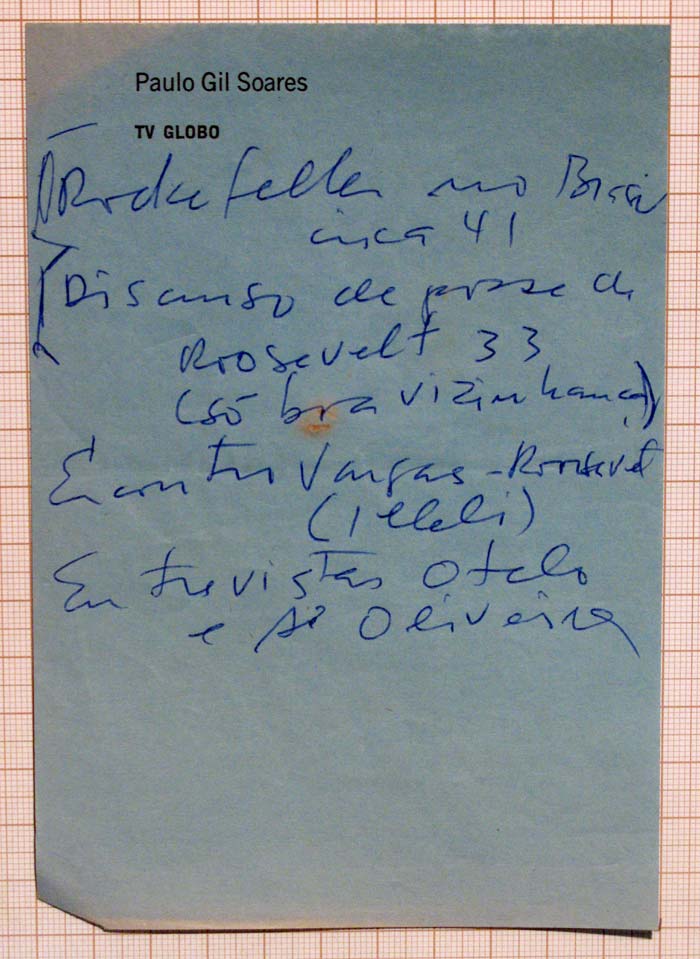 Paulo Gil Soares
TV GLOBO
Rockefeller no Brasil
circa 41
Discurso de posse de
Roosevelt 33
(só boa vizinhança)
Encontro Vargas-Roosevelt
Entrevistas Otelo
e Oliveira